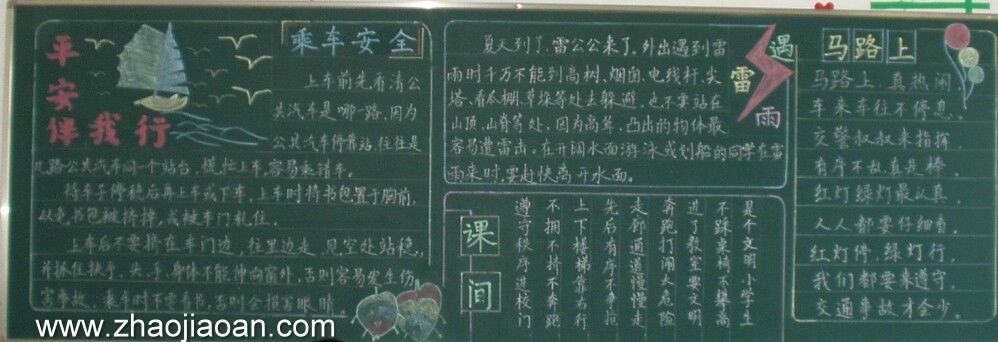 平安
伴我行
乘车安全
上车前先看清公
共汽车是哪一路,因为
公共汽车停靠站,往往是
几路公共汽车同一个站台,慌忙上车,容易乘错车。
待车子停稳后再上车或下车,上车时将书包置于胸前,
以免书包被挤掉,或被车门轧住。
上车后不要挤在车门边,往里边走,见空处站稳,
并抓住扶手,头、手、身体不能伸向窗外,否则容易发生伤
害事故。乘车时不要看书,否则会损害眼睛。
遇雷雨
夏天到了,雷公公来了,外出遇到雷
雨时千万不能到高树、烟囱、电线杆、尖
塔、看瓜棚、草垛等处去躲避,也不要站在
山顶、山脊等处,因为高耸、凸出的物体最
容易遭雷击。在开阔水面游泳或划船的同学在雷
雨来时,要赶快离开水面。
课间
是个文明小学生
不踩桌椅不攀高
进了教室要文明
奔跑打闹太危险
走郎通道慢慢走
先后有序不争抢
上下楼梯靠右行
不拥不挤不奔跑
遵守秩序进校门
马路上
马路上,真热闹,
车来车往不停息。
交警叔叔来指挥,
有序不乱真是棒。
红灯绿灯最认真,
人人都要仔细看。
红灯停,绿灯行,
我们都要来遵守,
交通事故才会少。
www.zhaojiaoan.com